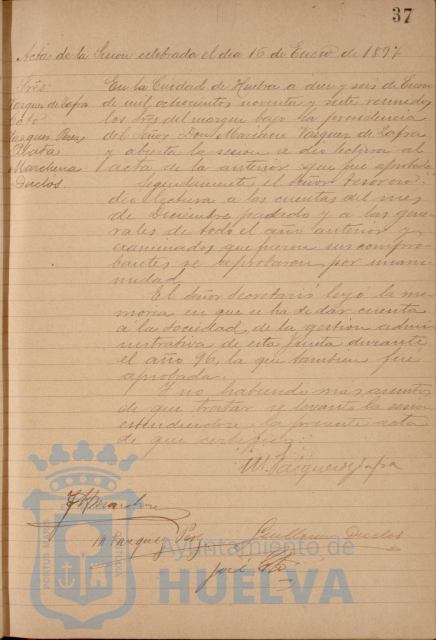 37
Acta de la Sesion celebrada el dia 16 de Enero de 1897
Sres.
Vazquez de Zafra
Soto
Vazquez Perez
Plata
Marchena
Duclos.
En la Ciudad de Huelva a diez y seis de Enero
de mil ochocientos noventa y siete reunidos
los Sres del margen bajo la presidencia
del Señor Don Marcelino Vazquez de Zafra
y abierta la sesion se dio lectura al
acta de la anterior que fue aprobada
Seguidamente el Señor Tesorero
dio lectura a las cuentas del mes
de Diciembre pasado y a las gene
rales de todo el año anterior y
examinados que fueron sus compro
bantes se aprobaron por unani
midad
El Señor Secretario leyó la me
moria en que se ha de dar cuenta
a la Sociedad, de la gestion admi
nistrativa de esta Junta durante
el año 96, la que tambien fue
aprobada.
Y no habiendo mas asuntos
de que tratar se levantó la sesion
estendiendose la presente acta
de que certifico:
M. Vazquez de Zafra
M Vazquez Perez
Guillermo Duclos
José Soto
Ayuntamiento de
HUELVA